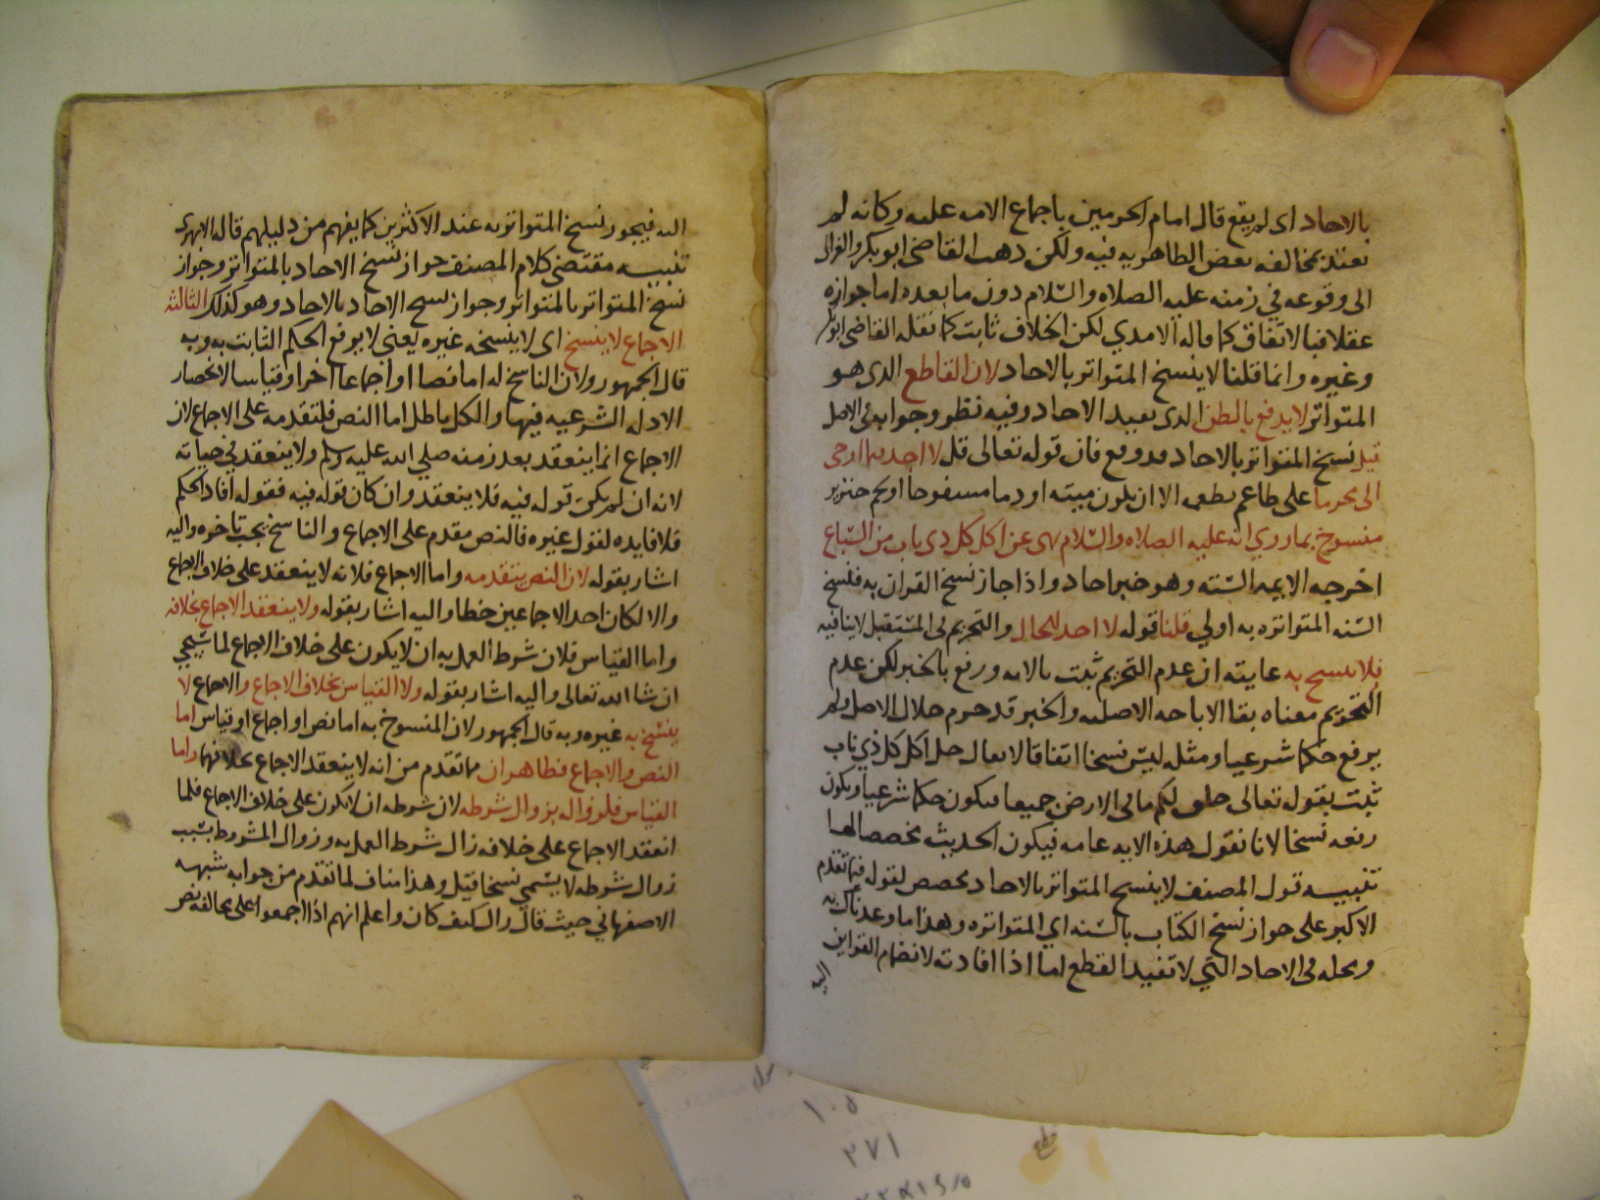 بالاحاد اى لم يقع قال امام الحرمين باجماع الامه عليه وكانه لم
يعتد بمخالفه بعض الظاهريه فيه ولكن ذهب القاضى ابو بكر والغزالى
الى وقوعه في زمنه عليه الصلاه والسّلام دون ما بعده اما جوازه
عقلا فبالاتفاق كما قاله الامدي لكن الخلاف ثابت كما نقله القاضى ابو بكر
وغيره وانما قلنا لا ينسخ المتواتر بالاحاد لان القاطع الذى هو
المتواتر لا يدفع بالظن الذى يفيد الاحاد وفيه نظر وجوابه في الاصل
قيل نسخ المتواتر بالاحاد قد وقع فان قوله تعالى قل لا اجد فيما اوحى
الى محرما على طاعم يطعمه الا ان يكون ميته او دما مسفوحا او لحم خنزير
منسوخ بما روي انه عليه الصلاه والسّلام نهى عن اكل كل ذى ناب من السّباع
اخرجه الايمه السّته وهو خبر احاد واذا جاز نسخ القران به فنسخ
السّنه المتواتره به اولي قلنا قوله لا اجد للحال والتحريم في المستقبل لا ينافيه
فلا ينسخ به غايته ان عدم التحريم ثبت بالايه ورفع بالخبر لكن عدم
التحريم معناه بقا الاباحه الاصليه والخبر قد حرم حلال الاصل ولم
يرفع حكما شرعيا ومثله ليس نسخا اتفاقا لا يقال حل اكل كل ذي ناب
ثبت بقوله تعالى خلق لكم ما في الارض جميعا فيكون حكما شرعيا ويكون
رفعه نسخا لانا نقول هذه الايه عامه فيكون الحديث مخصصا لها
تنبيه قول المصنف لا ينسخ المتواتر بالاحاد مخصص لقوله فيما تقدم
الاكثر على جواز نسخ الكتاب بالسّنه اي المتواتره وهذا ما وعدناك به
ومحله في الاحاد التي لا تفيد القطع اما اذا افادته لانضمام القراين
اليه
اليه فيجوز نسخ المتواتر به عند الاكثرين كما يفهم من دليلهم قاله الابهرى
تنبيه مقتضى كلام المصنف جواز نسخ الاحاد بالمتواتر وجواز
نسخ المتواتر بالمتواتر وجواز نسخ الاحاد بالاحاد وهو كذلك الثالثه
الاجماع لا ينسخ اى لا ينسخه غيره يعنى لا يرفع الحكم الثابت به وبه
قال الجمهور ولان الناسخ له اما نصا او اجماعا اخر او قياسا لانحصار
الادله الشرعيه فيها والكل باطل اما النص فلتقدمه على الاجماع لان
الاجماع انما ينعقد بعد زمنه صلي الله عليه وسلم ولا ينعقد في حياته
لانه ان لم يكن قوله فيه فلا ينعقد وان كان قوله فيه فقوله افاد الحكم
فلا فايده لقول غيره فالنص مقدم على الاجماع والناسخ يجب تاخره واليه
اشار بقوله لان النص يتقدمه واما الاجماع فلانه لا ينعقد على خلاف الاجماع
والا لكان احد الاجماعين خطا واليه اشار بقوله ولا ينعقد الاجماع بخلافه
واما القياس فلان شرط العمل به ان لا يكون على خلاف الاجماع لما سيجي
ان شا الله تعالى واليه اشار بقوله ولا القياس بخلاف الاجماع والاجماع لا
ينسخ به غيره وبه قال الجمهور لان المنسوخ به اما نص او اجماع او قياس اما
النص والاجماع فظاهران مما تقدم من انه لا ينعقد الاجماع بخلافهما واما
القياس فلزواله بزوال شرطه لان شرطه ان لا يكون على خلاف الاجماع فلما
انعقد الاجماع على خلافه زال شرط العمل به وزوال المشروط بسبب
زوال شرطه لا يسمي نسخا قيل وهذا مناف لما تقدم من جوابه شبهه
الاصفهاني حيث قال زال كيف كان واعلم انهم اذا اجمعوا على مخالفه نص
١٠٥
٣٧١